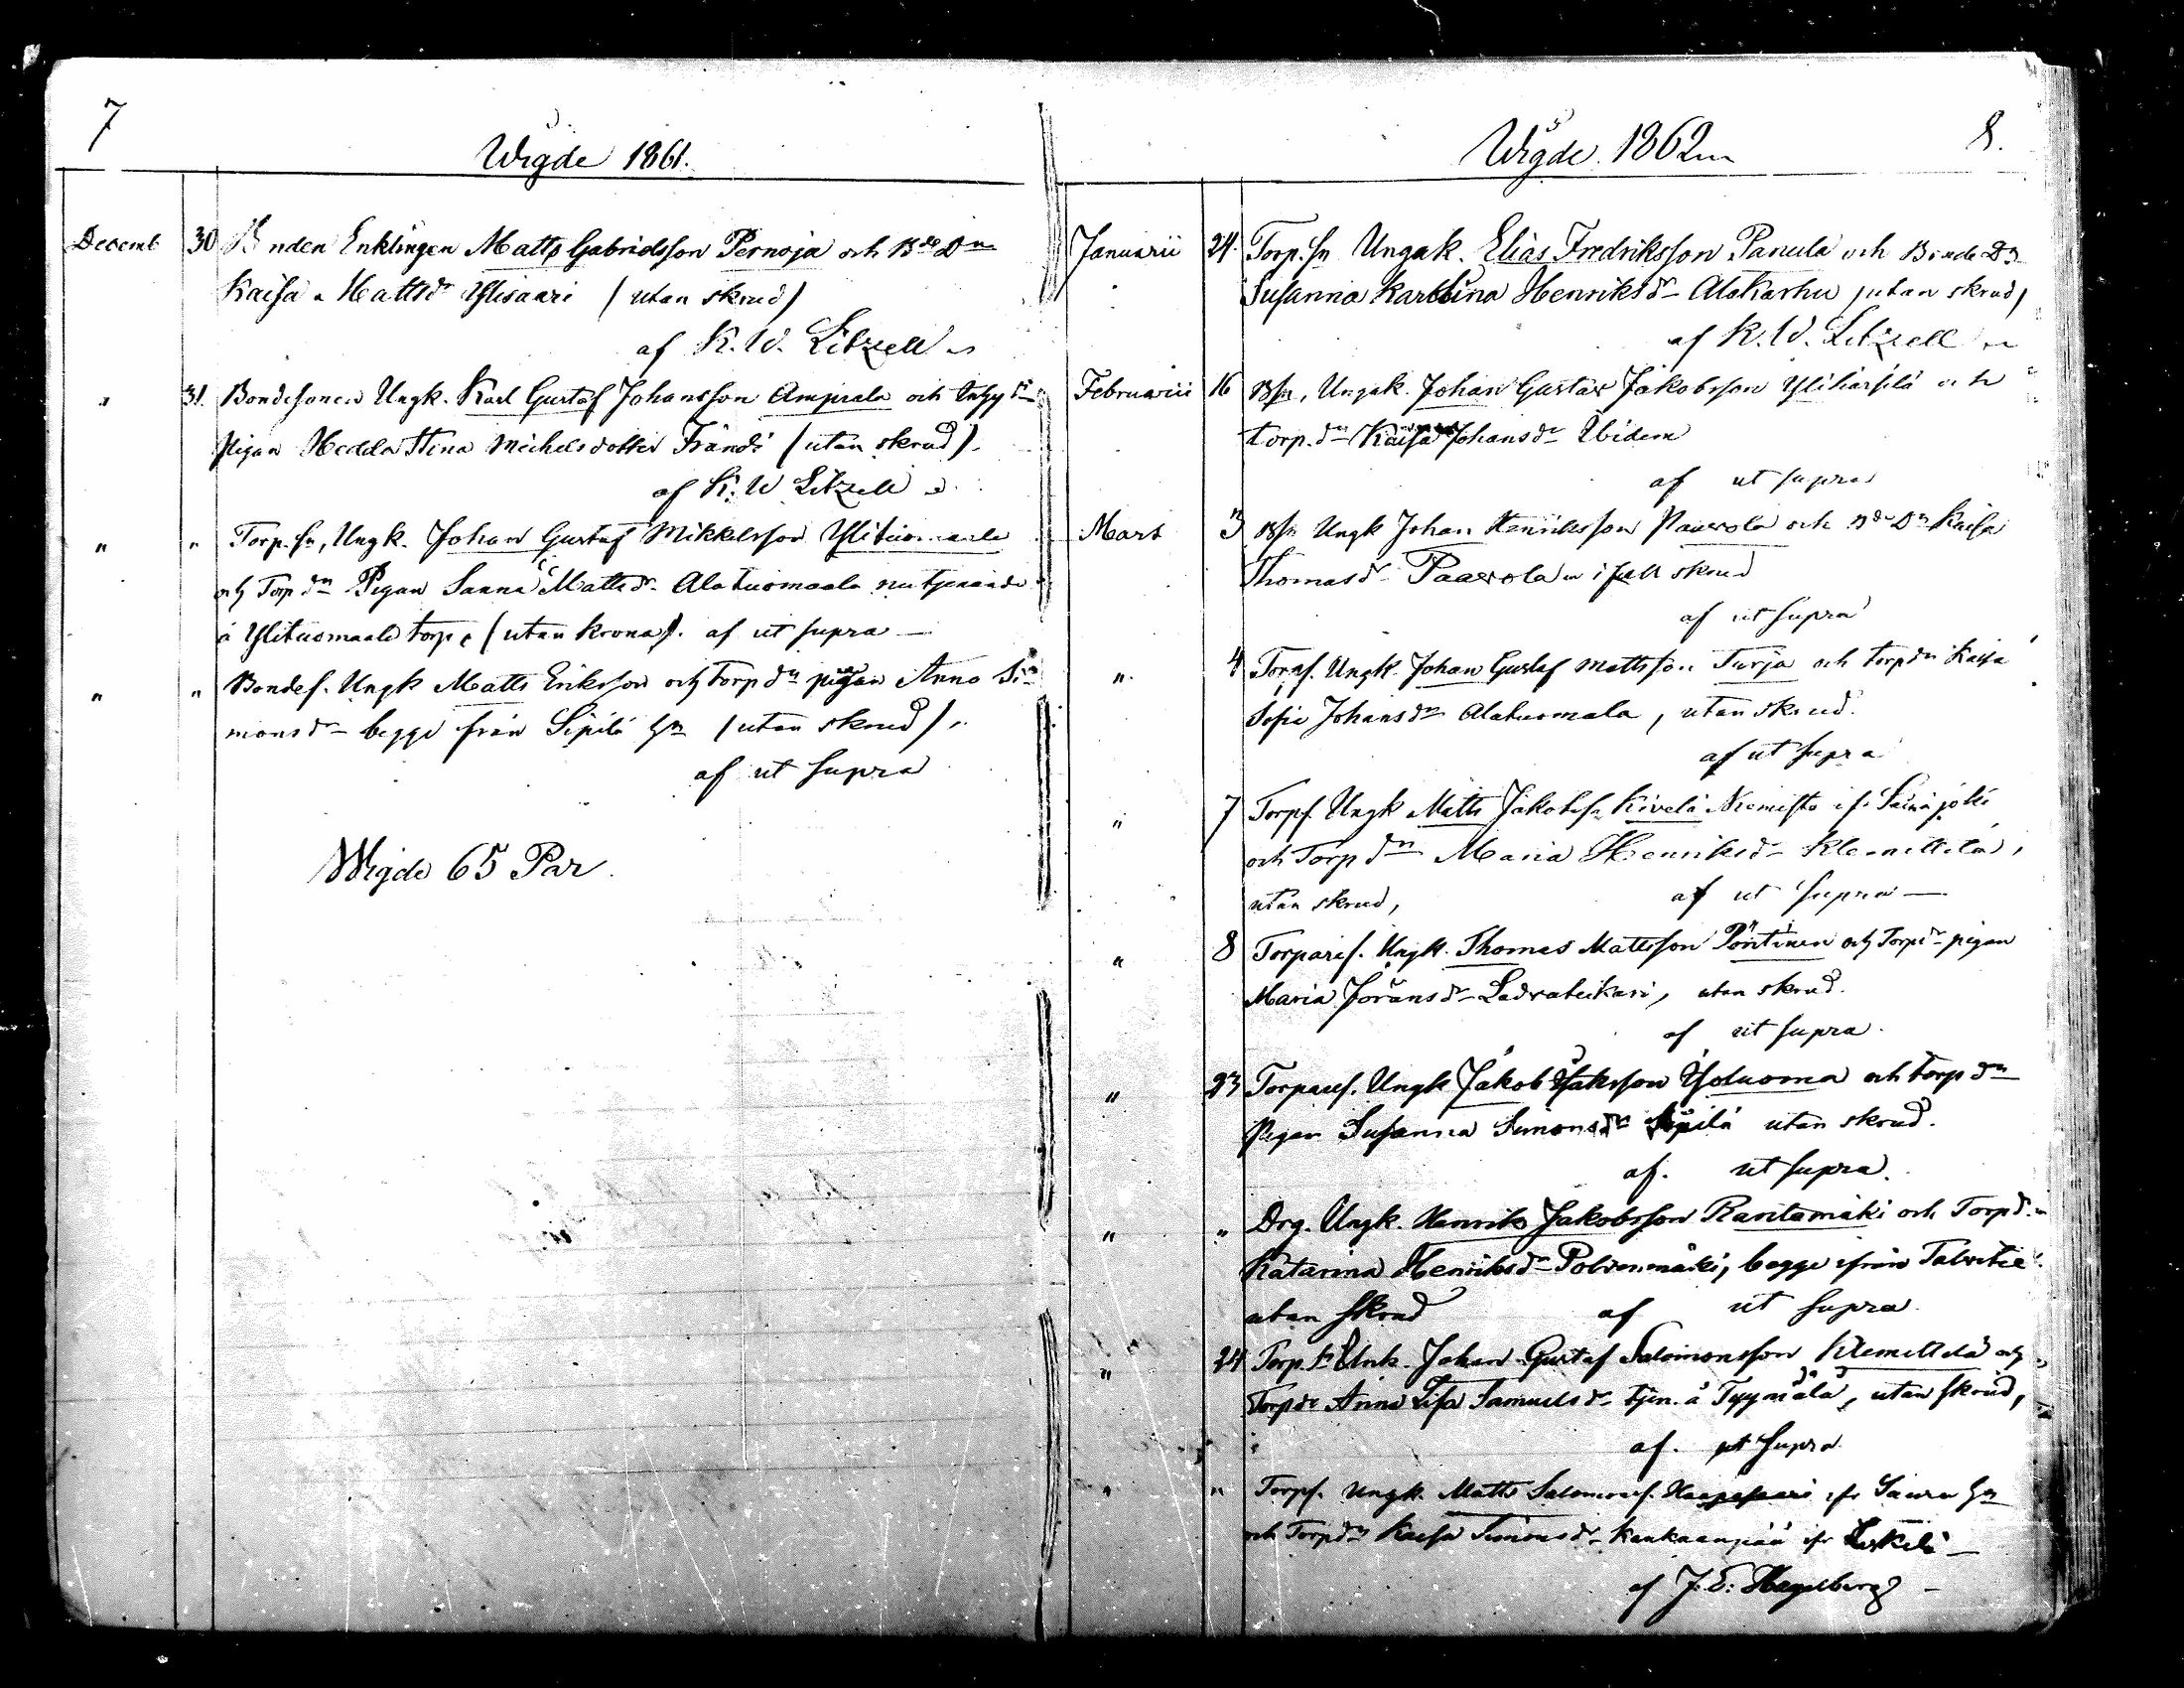 7
Wigde 1861.
Decemb 30 Bonden Enklingen Matts Gabrielsson Pernoja och Bde Dn
Kaisa Mattsdr Ylisaari (utan skrud)
af K. W. Litzell
" 31. Bondesonen Ungk. Karl Gustaf Johansson Ampiala och
Pigan Hedda Stina Michelsdotter Frändi (utan skrud).
af K. W Litzell
" " Torp. sn, Ungk. Johan Gustaf Mikkelsson Ylituomaala
och Torp dn Pigan Sanna Mattsdr Alatuomaala nu tjenande
å Ylituomaala torp, (utan krona). af ut supra
" " Bondes. Ungk Matts Eriksson och Torp dn pigan Anna Si-
monsdr begge från Sipilä hn (utan skrud),
af ut supra
Wigde 65 Par.
8.
Wigde 1862
Januarii 24. Torp. sn Ungk. Elias Fredriksson Panula och Bonde Dn
Susanna Karolina Henriksdr Alakarhu (utan skrud)
af K. W. Litzell
Februarii 16 Bsn, Ungk. Johan Gustav Jakobsson Ylihärsilä och
torp. dn Kaisa Johansdr Ibidem
af ut supra
Mars 3 Bsn Ungk Johan Henriksson Paavola och Bde Dn Kaisa
Thomasdr Paavola i full skrud
af ut supra
" 4 Torps. Ungk. Johan Gustaf Mattsson Turja och torp dn Kaisa
Sofia Johansdr Alatuomala, utan skrud.
af ut supra
" 7 Torps. Ungk Matts Jakobss. Kivelä Niemistö ifr Seinäjoki
och Torp dn Maria Henriksdr Klemettilä,
utan skrud, af ut supra
" 8 Torpares. Ungk. Thomas Mattsson Pöntinen och Torp dr pigan
Maria Jöransdr utan skrud.
af ut supra.
" 23 Torpares. Ungk Jakob Isaksson Isoluoma och torp dn
Pigan Susanna Simonsdr Sipilä utan skrud.
af. ut supra.
" " Drg. Ungk. Henrik Jakobsson Rantamäki och Torpd.
Katarina Henriksdr Polvenmäki, begge ifrån Talvitie
utan skrud af ut supra
" 24 Torp. sn Unk. Johan Gustaf Salomonsson Klemettilä och
Torpdr Anna Lisa Samuelsdr tjen. å Tyynälä, utan skrud,
af. ut supra
" " Torps. Ungk. Matts Salomons. Haapasaari ifr Saura hn
och Torpdn Kaisa Simonsdr Kankaanpää ifr Leskelä
af J. E. Hagelberg